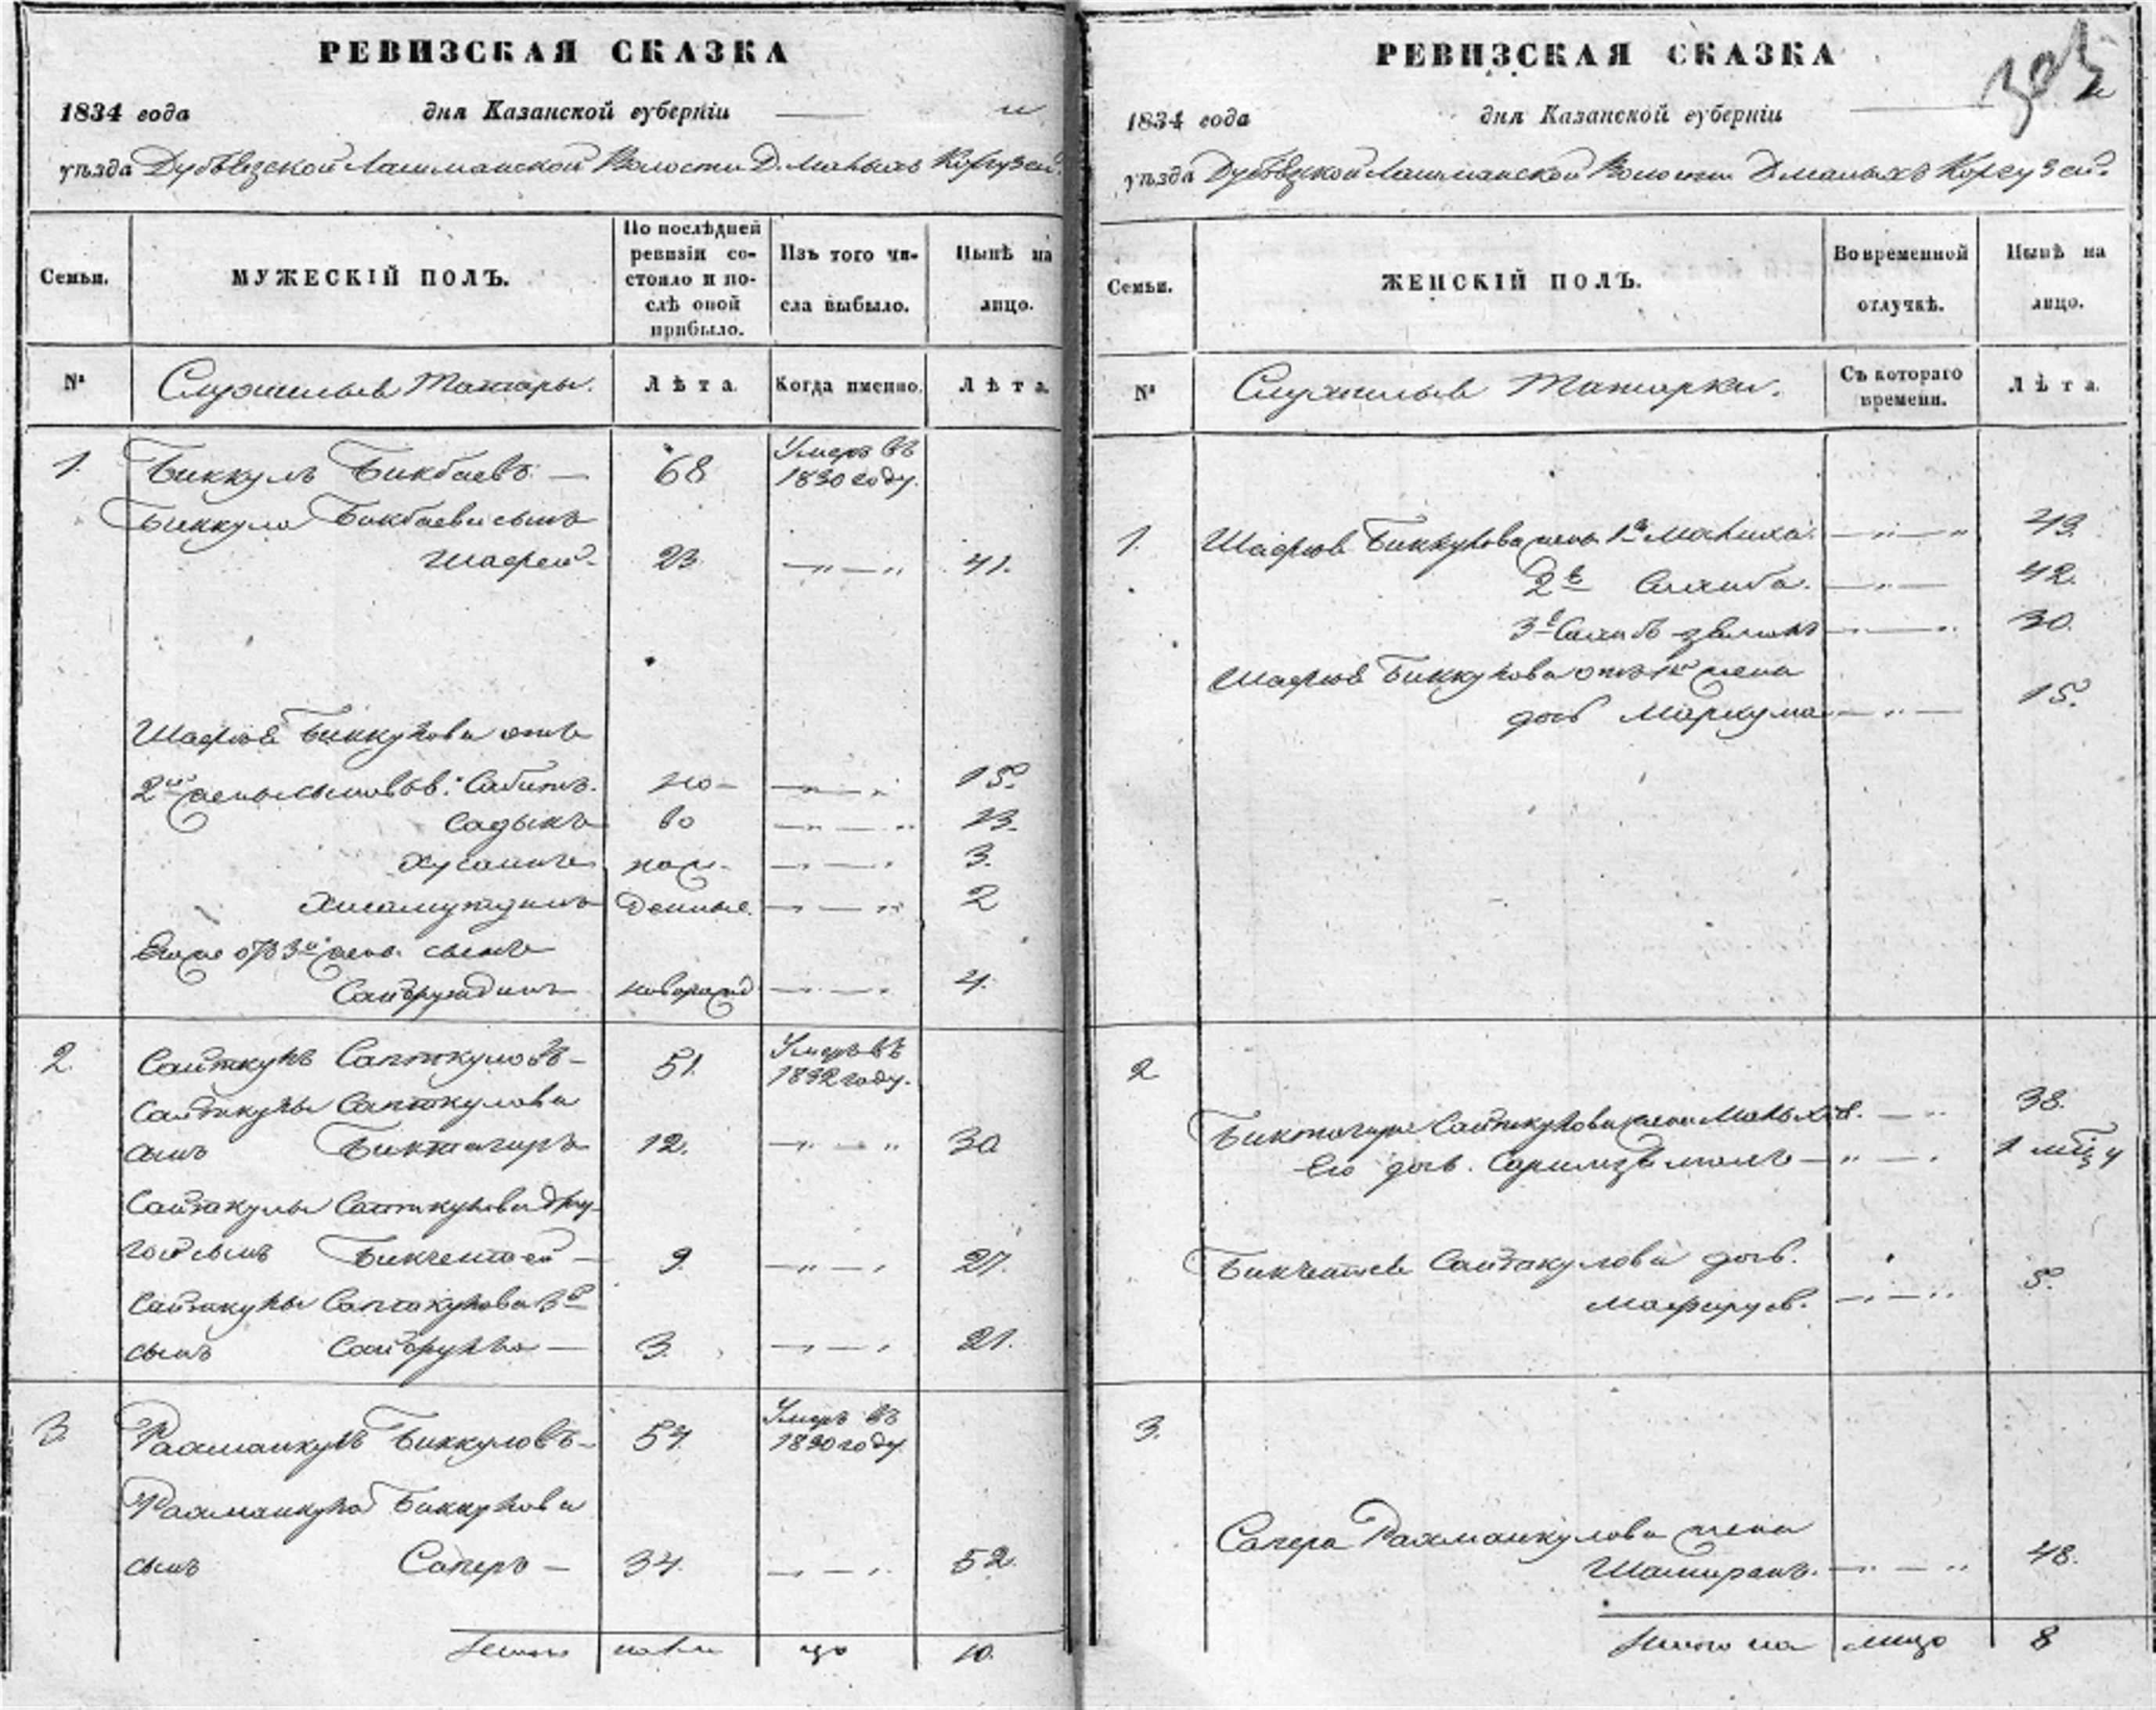 РЕВИЗСКАЯ СКАЗКА
1834 года дня Казанской губерніи и
уѣзда Лашманской Волости Д. Малыхъ
Семьи.
МУЖЕСКІЙ ПОЛЪ.
По послѣдней
ревизіи со-
стояло и по-
слѣ оной
прибыло.
Изъ того чи-
сла выбыло.
Нынѣ на
лицо.
№ Служилыя Татары. Лѣта. Когда именно. Лѣта.
1. Биккулъ Бикбаевъ — 68 Умеръ въ
1830 году.
Биккула Бикбаева сынъ
Шафей. 23 —"—" 41.
Шафѣя Биккулова отъ
2й жены сыновья: Сабитъ. но- 15.
Садыкъ во 13.
Хусаинъ рож- 3.
Хисамутдинъ денные. 2
Его же отъ 3й жены сынъ
Сайфутдинъ новорожд 4.
2. Сайткулъ Сапткуловъ — 51. Умеръ въ
1832 году.
Сайткулы Сапткулова
сынъ Биктагиръ 12. 30
Сайткулы Сапткулова дру-
гой сынъ Бикчентей — 9. 27.
Сайткулы Сапткулова 3й
сынъ — 3. 21.
3. Рахманкулъ Биккуловъ — 54. Умеръ въ
1830 году
Рахманкула Биккулова
сынъ Саперъ — 34. 52.
Итого на ли цо 10.
РЕВИЗСКАЯ СКАЗКА
305
1834 года дня Казанской губерніи и
уѣзда Лашманской Волости Д. Малыхъ
Семьи.
ЖЕНСКІЙ ПОЛЪ.
Во временной
отлучкѣ.
Нынѣ на
лицо.
№ Служилыя Татарки. Съ котораго
времени. Лѣта.
1. Шафѣя Биккулова жена 1я Малиха. 43.
2я Салиба. 42.
3я 30.
Шафѣя Биккулова отъ 1й жены
дочь 15.
2
Биктагира Сайткулова жена 38.
Его дочь. 1 мѣсяц
Бикчентея Сайткулова дочь.
5.
3.
Сапера Рахманкулова жена
48.
Итого на лицо 8